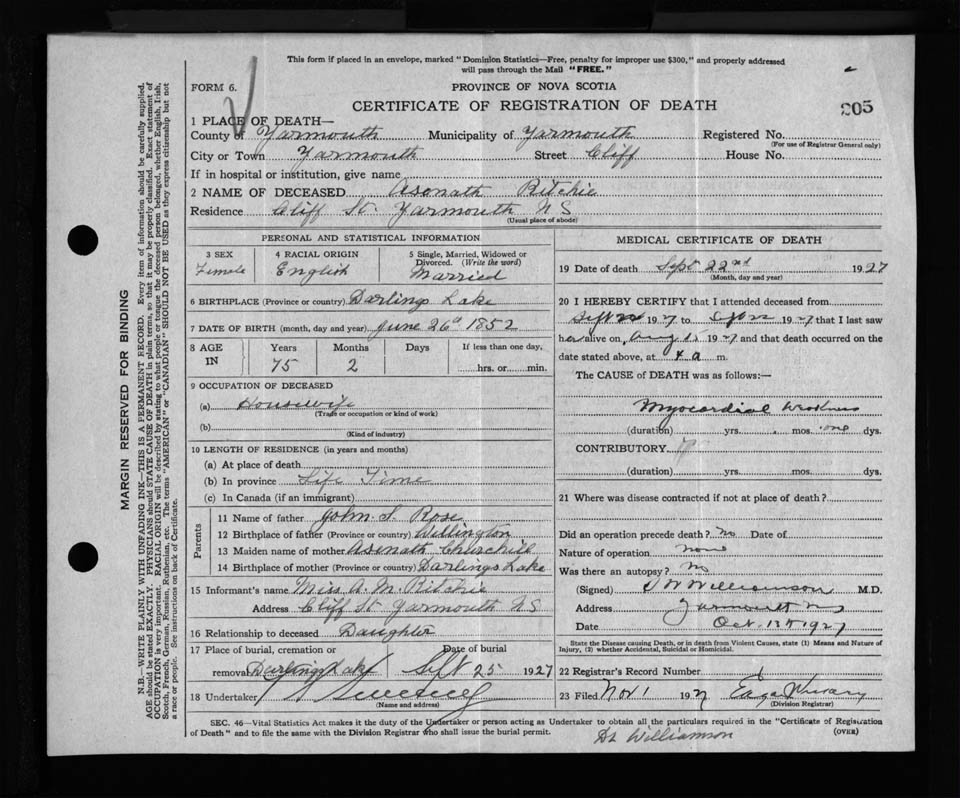 This form if placed in an envelope, marked "Dominion Statistics—Free, penalty for improper use $300," and properly addressed
will pass through the Mail "FREE."
FORM 6.
PROVINCE OF NOVA SCOTIA
CERTIFICATE OF REGISTRATION OF DEATH
205
1 PLACE OF DEATH—
County of Yarmouth Municipality of Yarmouth Registered No.
(For use of Registrar General only)
City or Town Yarmouth Street Cliff House No.
If in hospital or institution, give name
2 NAME OF DECEASED Asenath Ritchie
Residence Cliff St. Yarmouth N S
(Usual place of abode)
PERSONAL AND STATISTICAL INFORMATION
3 SEX 4 RACIAL ORIGIN 5 Single, Married, Widowed or
Divorced. (Write the word)
Female English Married
6 BIRTHPLACE (Province or country) Darlings Lake
7 DATE OF BIRTH (month, day and year) June 26th 1852
8 AGE IN Years Months Days If less than one day,
75 2 hrs. or min.
9 OCCUPATION OF DECEASED
(a) Housewife
(Trade or occupation or kind of work)
(b)
(Kind of industry)
10 LENGTH OF RESIDENCE (in years and months)
(a) At place of death
(b) In province Life Time
(c) In Canada (if an immigrant)
Parents
11 Name of father John S. Rose
12 Birthplace of father (Province or country) Wellington
13 Maiden name of mother Asenath Churchill
14 Birthplace of mother (Province or country) Darlings Lake
15 Informant's name Miss A. M. Ritchie
Address Cliff St Yarmouth N S
16 Relationship to deceased Daughter
17 Place of burial, cremation or Date of burial
removal Darlings Lake Sept 25 1927
18 Undertaker
(Name and address)
MEDICAL CERTIFICATE OF DEATH
19 Date of death Sept 22nd 1927
(Month, day and year)
20 I HEREBY CERTIFY that I attended deceased from
Sept 22 1927 to Sept 22 1927 that I last saw
her alive on, Aug 15 1927 and that death occurred on the
date stated above, at 4 a m.
The CAUSE of DEATH was as follows:—
Myocardial weakness
(duration) yrs. mos. one dys.
CONTRIBUTORY
(duration) yrs. mos. dys.
21 Where was disease contracted if not at place of death?
Did an operation precede death? no Date of
Nature of operation none
Was there an autopsy? no
(Signed) Williamson M.D.
Address Yarmouth NS
Date Oct 13th 1927
State the Disease causing Death, or in death from Violent Causes, state (1) Means and Nature of
Injury, (2) whether Accidental, Suicidal or Homicidal.
22 Registrar's Record Number
23 Filed Nov 1 1927
(Division Registrar)
SEC. 46—Vital Statistics Act makes it the duty of the Undertaker or person acting as Undertaker to obtain all the particulars required in the "Certificate of Registration
of Death" and to file the same with the Division Registrar who shall issue the burial permit. (OVER)
Dr Williamson
MARGIN RESERVED FOR BINDING
N.B.—WRITE PLAINLY WITH UNFADING INK—THIS IS A PERMANENT RECORD. Every item of information should be carefully supplied.
AGE should be stated EXACTLY. PHYSICIANS should STATE CAUSE OF DEATH in plain terms, so that it may be properly classified. Exact statement of
OCCUPATION is very important. RACIAL ORIGIN will be described by stating to what people or tongue the deceased person belonged, whether English, Irish,
Scotch, French, German, Russian, Ruthenian, etc. The terms "AMERICAN" or "CANADIAN" SHOULD NOT BE USED as they express citizenship but not
a race or people. See instructions on back of Certificate.